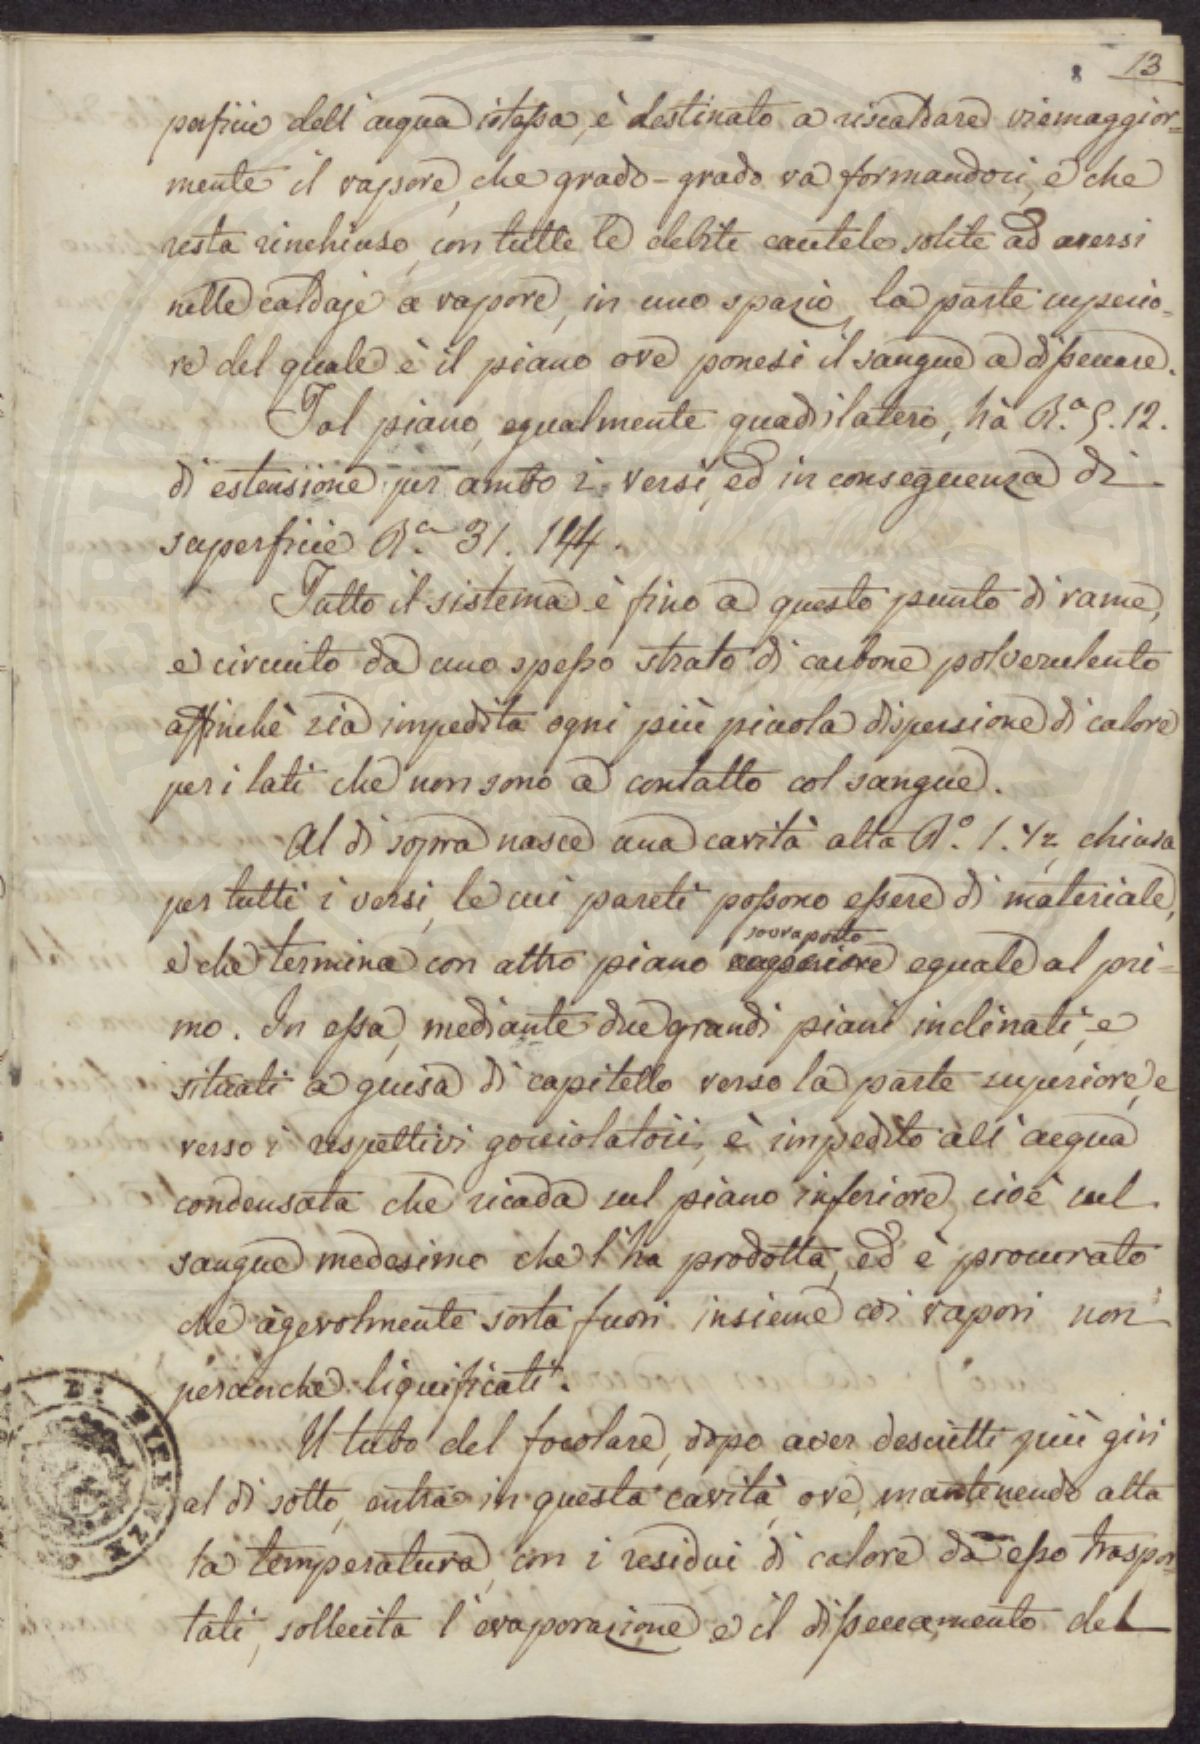 13
perficie dell'acqua istessa, è destinato a riscaldare viemaggior=
mente il vapore, che grado-grado va formandosi, e che
resta rinchiuso, con tutte le debite cautele solite ad aversi
nelle caldaje a vapore, in uno spazio, la parte superio=
re del quale è il piano ove ponesi il sangue a dissecare.
Tal piano, egualmente quadrilatero, hà B.a 5.12.
di estensione per ambo i versi, ed in conseguenza di
superficie B.a 31. 144.
Tutto il sistema è fino a questo punto di rame,
e circuito da uno spesso strato di carbone polverulento
affinchè sia impedita ogni più piccola dispersione di calore
per i lati che non sono a contatto col sangue.
Al di sopra nasce una cavità alta B.o 1. 1/2, chiusa
per tutti i versi, le cui pareti possono essere di materiale,
sovraposto
e che termina con altro piano superiore eguale al pri=
mo. In essa, mediante due grandi piani inclinati, e
situati a guisa di capitello verso la parte superiore, e
verso i respettivi gocciolatoii, è impedito all'acqua
condensata che ricada sul piano inferiore, cioè sul
sangue medesimo che l'ha prodotta, ed è procurato
che agevolmente sorta fuori insieme coi vapori non
peranche liquificati.
Il tubo del focolare, dopo aver descritti più giri
al di sotto, entra in questa cavità, ove, mantenendo alta
la temperatura, con i residui di calore da esso traspor=
tati, sollecita l'evaporazione e il disseccamento del